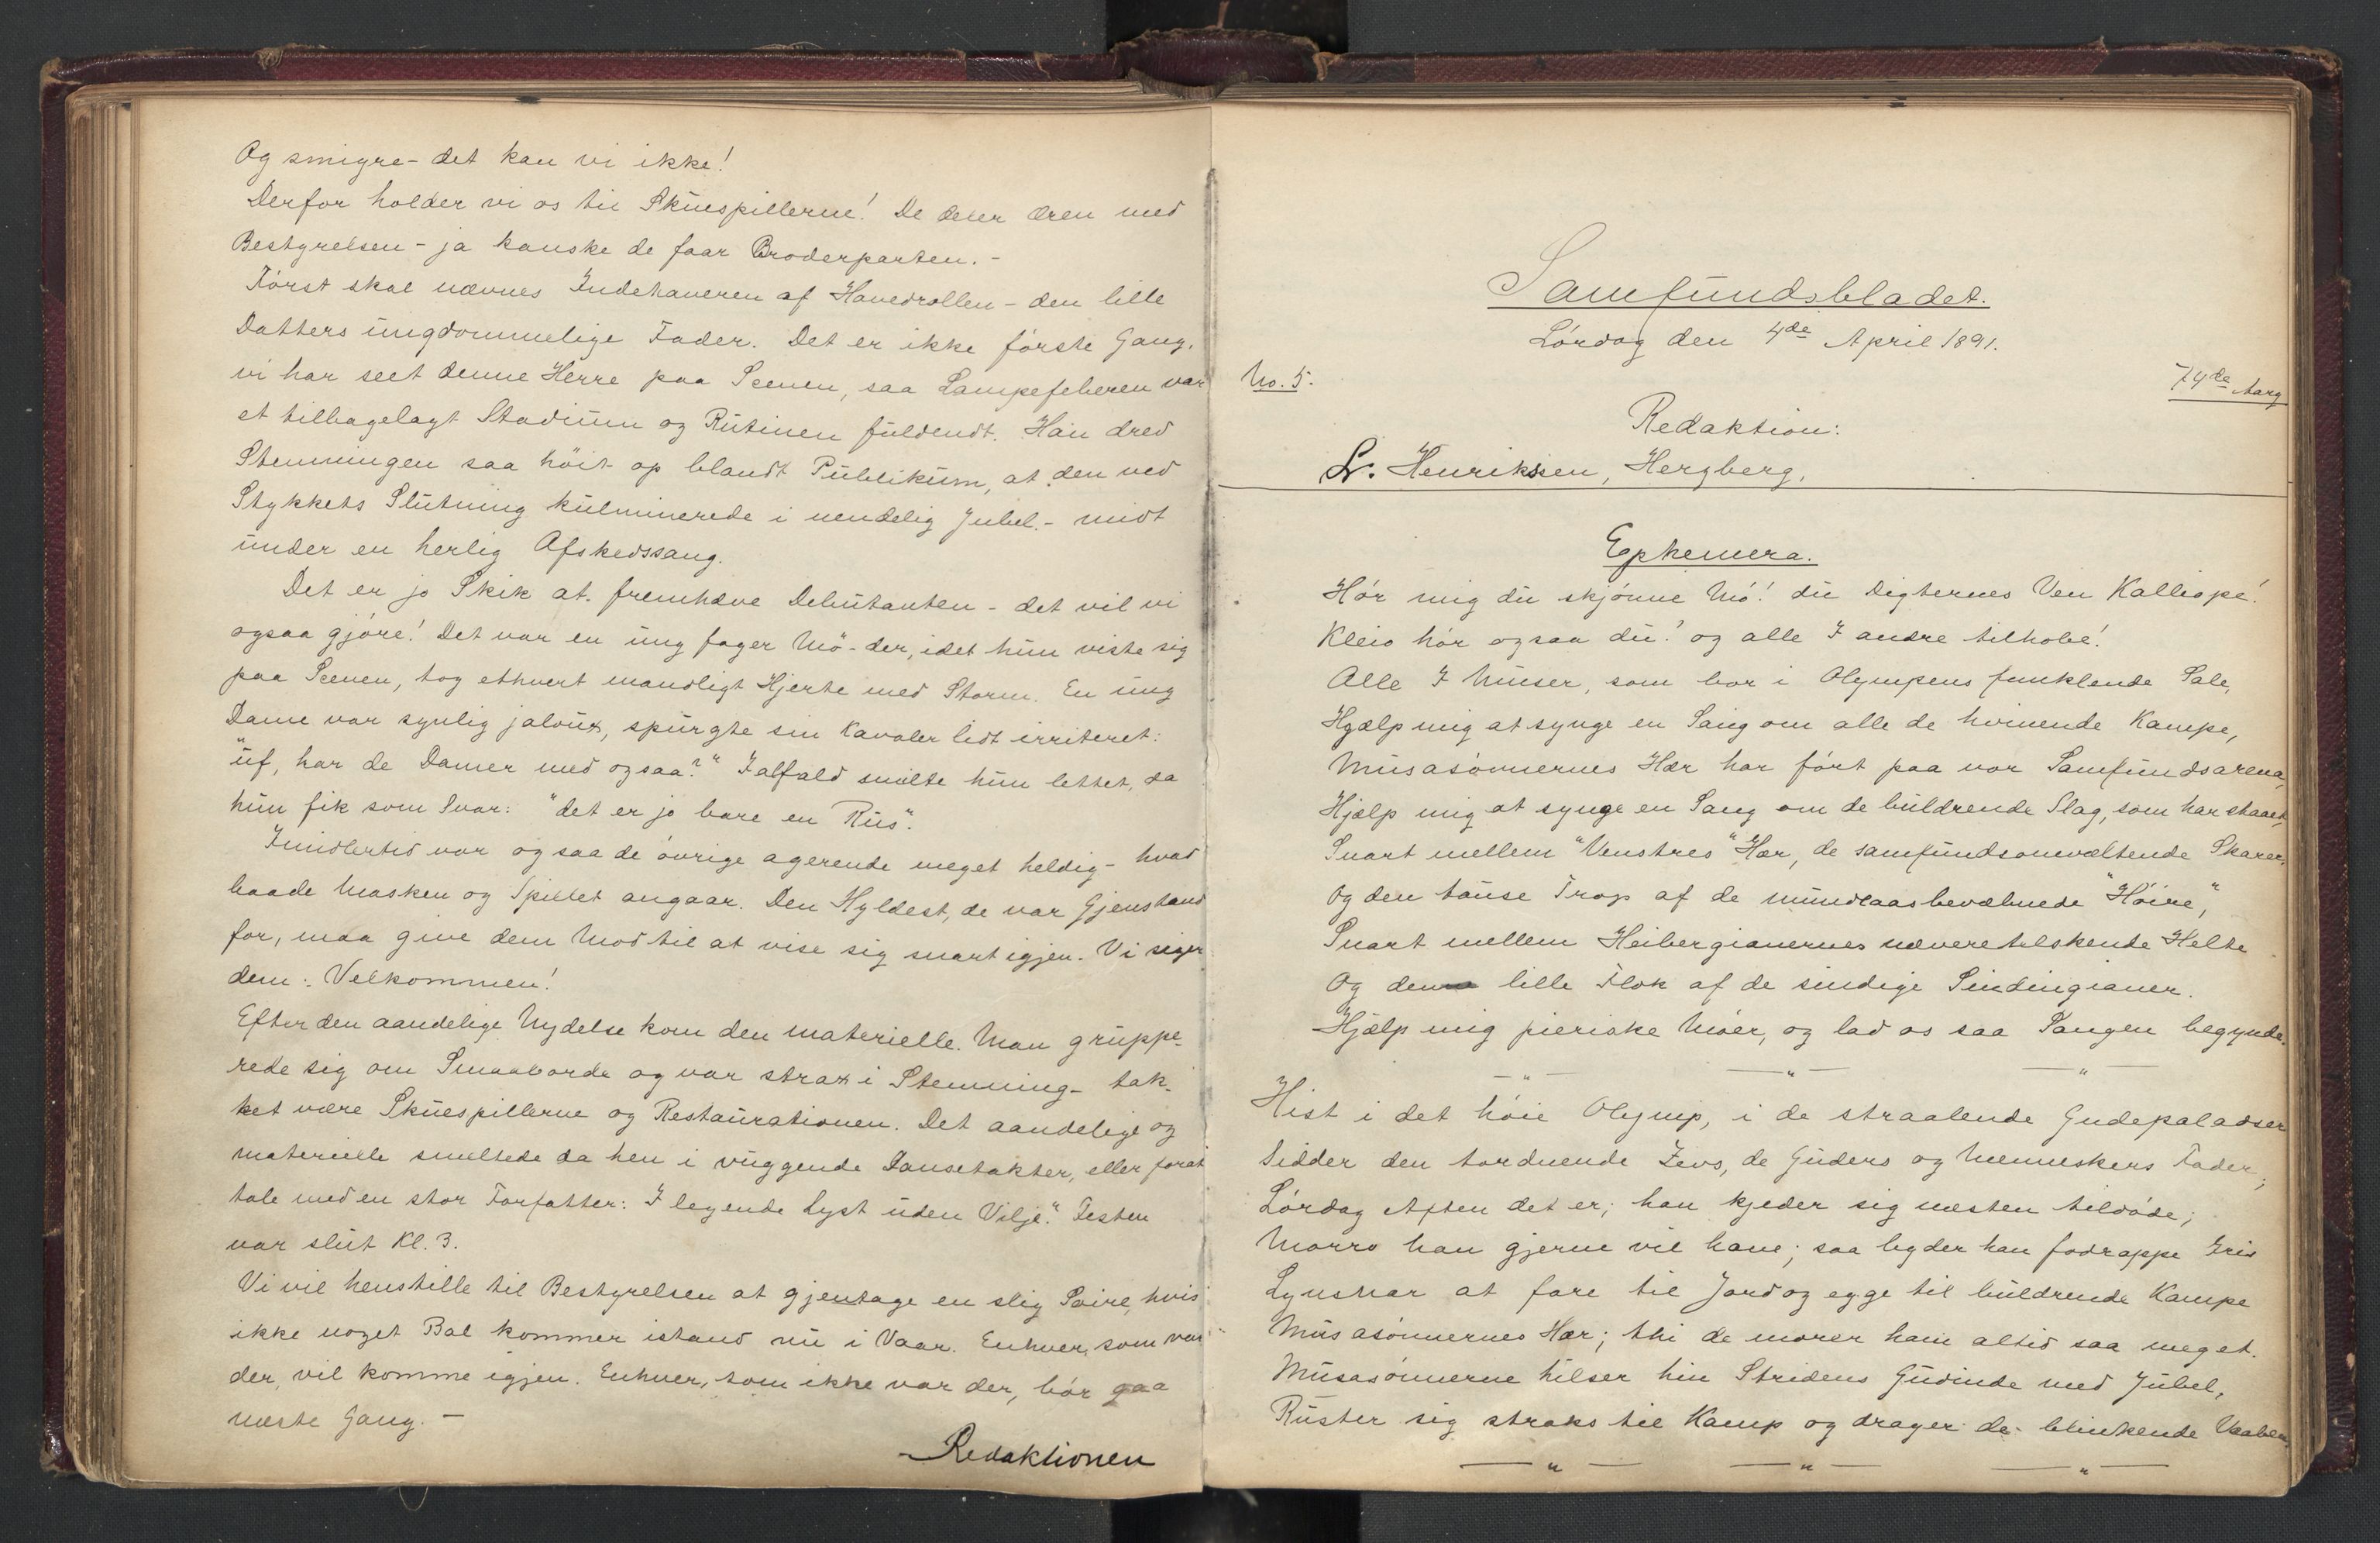 Og smigre - det kan vi ikke!
Derfor holder vi os til Skuespillerne! De deler Æren med
Bestyrelsen - ja kanske de faar Broderparten. -
Først skal nævnes Indehaveren af Hovedrollen - den lille
Datters ungdommelige Fader. Det er ikke første Gang,
vi har seet denne Herre paa Scenen, saa Lampefeberen var
et tilbagelagt Stadium og Rutinen fuldendt. Han drev
Stemningen saa høit op blandt Publikum, at den ved
Stykkets Slutning kulminerede i uendelig Jubel. - midt
under en herlig Afskedssang.
Det er jo Skik at fremhæve Debutanten - det vil vi
ogsaa gjøre! Det var en ung fager Mø - der, idet hun viste sig
paa Scenen, tog ethvert mandligt Hjerte med Storm. En ung
Dame var synlig jaloux, spurgte sin Kavaler lidt irriteret:
"uf, har de Damer med ogsaa?" Ialfald smilte hun lettet, da
hun fik som Svar: "det er jo bare en Rus".
Imidlertid var ogsaa de øvrige agerende meget heldig - hvad
baade Masken og Spillet angaar. Den Hyldest, de var Gjenstand
for, maa give dem Mod til at vise sig snart igjen. Vi siger
dem: Velkommen!
Efter den aandelige Nydelse kom den materielle. Man gruppe-
rede sig om Smaaborde og var strax i Stemning - tak-
ket være Skuespillerne og Restaurationen. Det aandelige og
materielle smeltede da hen i vuggende Dansetakter, eller forat
tale med en stor Forfatter: "I legende Lyst uden Vilje." Festen
var slut Kl. 3.
Vi vil henstille til Bestyrelsen at gjentage en slig Soire, hvis
ikke noget Bal kommer istand nu i Vaar. Enhver, som var
der, vil komme igjen. Enhver, som ikke var der, bør gaa
næste Gang. -
Redaktionen
Samfundsbladet.
Lørdag den 4de April 1891.
No. 5.
74de Aarg
Redaktion:
Dr. Henriksen, Hergberg.
Ephemera.
Hør mig du skjønne Mø! du Digternes Ven Kalliope!
Kleio hør ogsaa du! og alle I andre tilhobe!
Alle I Muser, som bor i Olympens funklende Sale,
Hjælp mig at synge en Sang om alle de hvinende Kampe,
Musasønnernes Hær har ført paa vor Samfundsarena,
Hjælp mig at synge en Sang om de buldrende Slag, som har staaet,
Snart mellem "Venstres" Hær, de samfundsomvæltende Skarer,
Og den tause Trop af de mundlaasbevæbnede "Høire",
Snart mellem Heibergianernes næveretelskende Helte
Og den lille Flok af de sindige Sindingianer.
Hjælp mig pieriske Møer, og lad os saa Sangen begynde.
— " — — " — — " —
Hist i det høie Olymp, i de straalende Gudepaladser
Sidder den tordnende Zevs, de Guders og Menneskers Fader;
Lørdag Aften det er; han kjeder sig næsten tildøde;
Morro han gjerne vil have; saa byder han fodrappe Iris
Lynsnar at fare til Jord og egge til buldrende Kampe
Musasønnernes Hær; thi de morer ham altid saa meget.
Musasønnerne hilser hin Stridens Gudinde med Jubel,
Ruster sig straks til Kamp og drager de blinkende Vaaben.
— " — — " — — " —